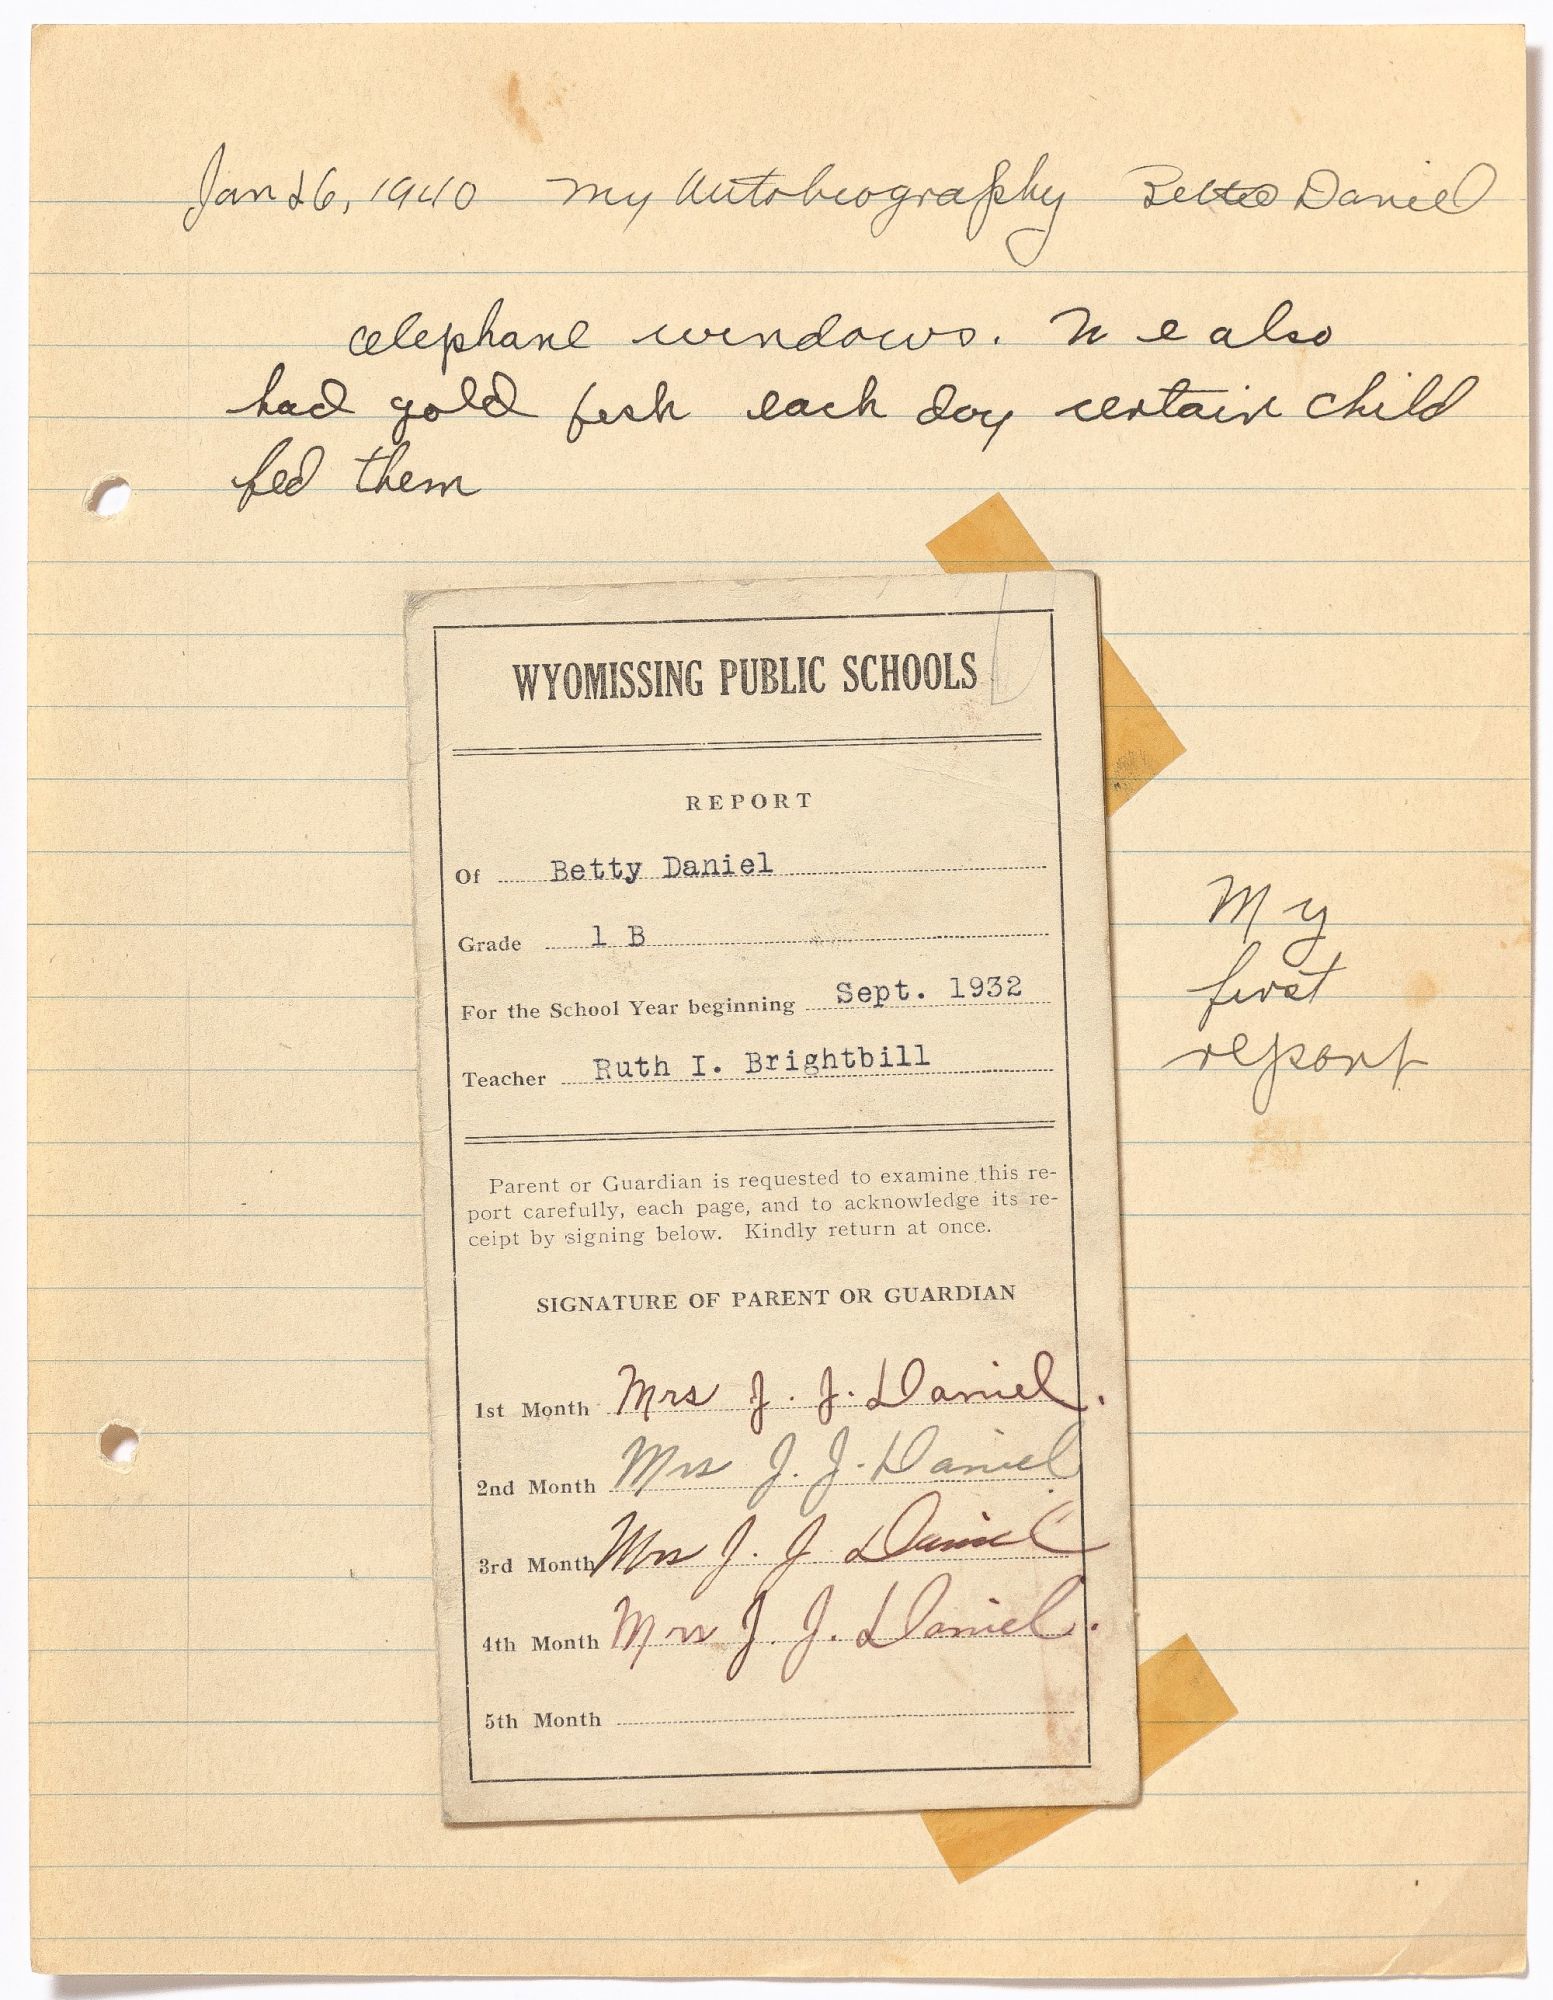 Jan 26, 1940 My Autobiography Bette Daniel
celephane windows. We also
had gold fish each day certain child
fed them
WYOMISSING PUBLIC SCHOOLS
REPORT
Of Betty Daniel
Grade 1 B
For the School Year beginning Sept. 1932
Teacher Ruth I. Brightbill
My
first
report
Parent or Guardian is requested to examine this re-
port carefully, each page, and to acknowledge its re-
ceipt by signing below. Kindly return at once.
SIGNATURE OF PARENT OR GUARDIAN
1st Month Mrs J. J. Daniel.
2nd Month Mrs J. J. Daniel
3rd Month Mrs J. J Daniel
4th Month Mrs J. J. Daniel.
5th Month